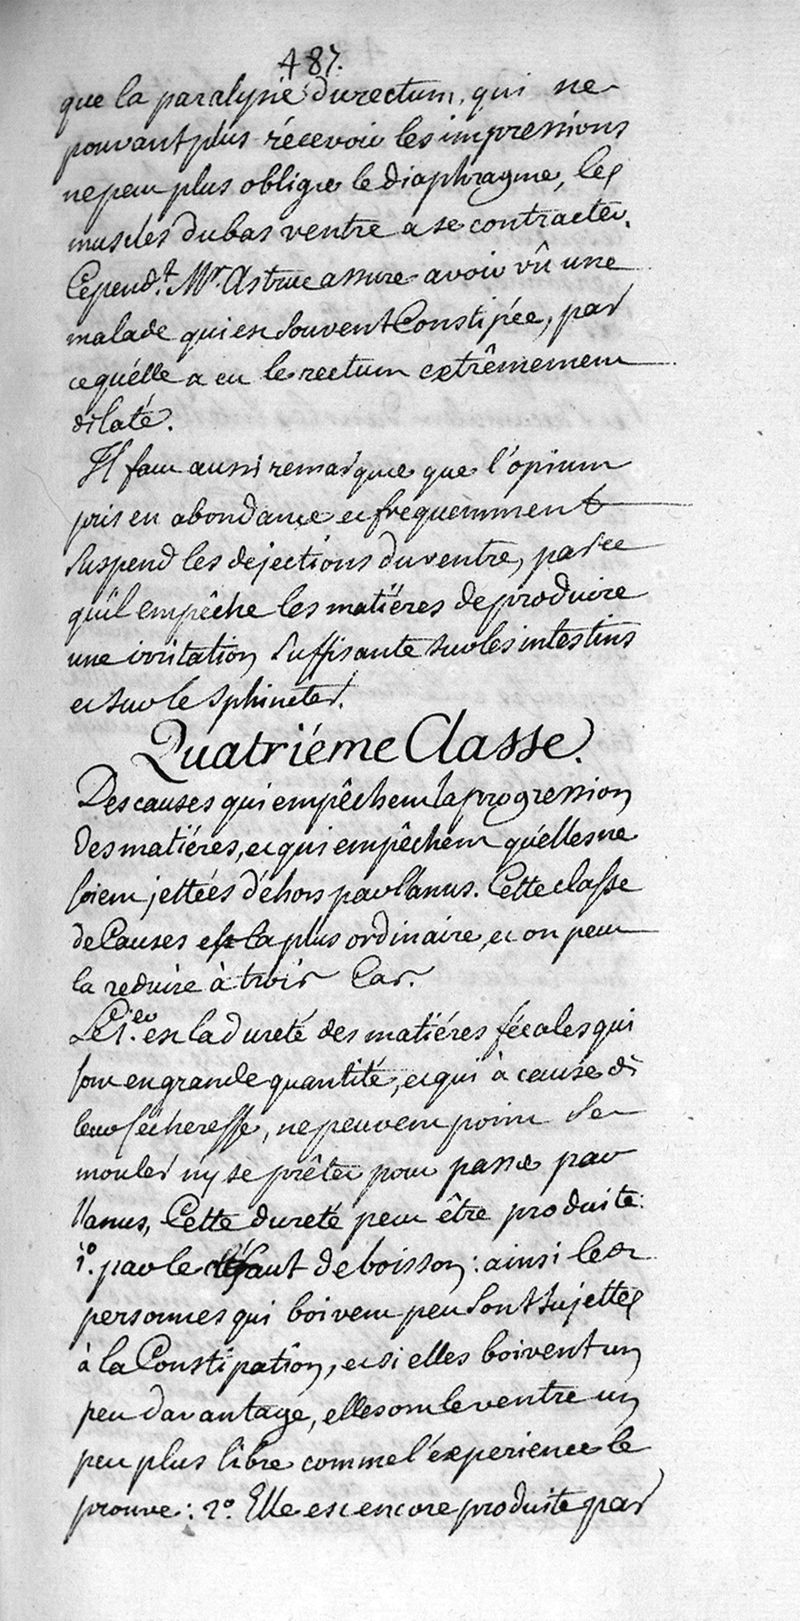 487.
que la paralysie du rectum, qui ne
pouvant plus récevoir les impressions
ne peut plus obliger le diaphragme, les
muscles du bas ventre a se contracter.
Cepend.t Mr. Astruc assure avoir vû une
malade qui est souvent Constipée, par
ce qu'élle a eu le rectum extrêmement
dilaté.
Il faut aussi remarquer que l'opium
pris en abondance et frequemment
suspend les dejections du ventre, parce
qu'il empêche les matiéres de produire
une irritation suffisante sur les intestins
et sur le sphincter.
Quatriéme Classe.
Des causes qui empêchent la progression
des matiéres, et qui empêchent qu'elles ne
soient jettées déhors par l'anus. Cette classe
de Causes est la plus ordinaire, et on peut
la reduire à trois Cas.
Le 1.er est la dureté des matiéres fécales qui
sont en grande quantité, et qui à cause de
leur sécheresse, ne peuvent point se
mouler ny se prêter pour passer par
l'anus, Cette dureté peut être produite:
1.o par le défaut de boisson: ainsi les
personnes qui boivent peu sont sujettes
à la Constipation, et si elles boivent un
peu davantage, elles ont le ventre un
peu plus libre comme l'experience le
prouve: 2.o Elle est encore produite par